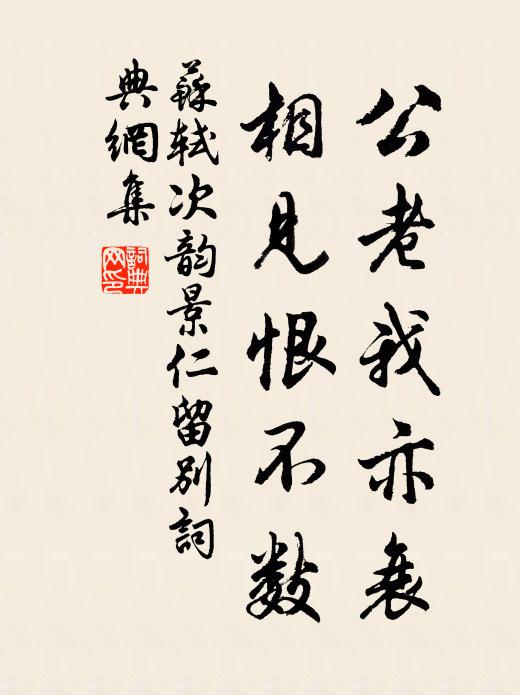 公老我亦衰
相見恨不數
蘇軾次韵景仁留別詞
典網集
詞典
网印